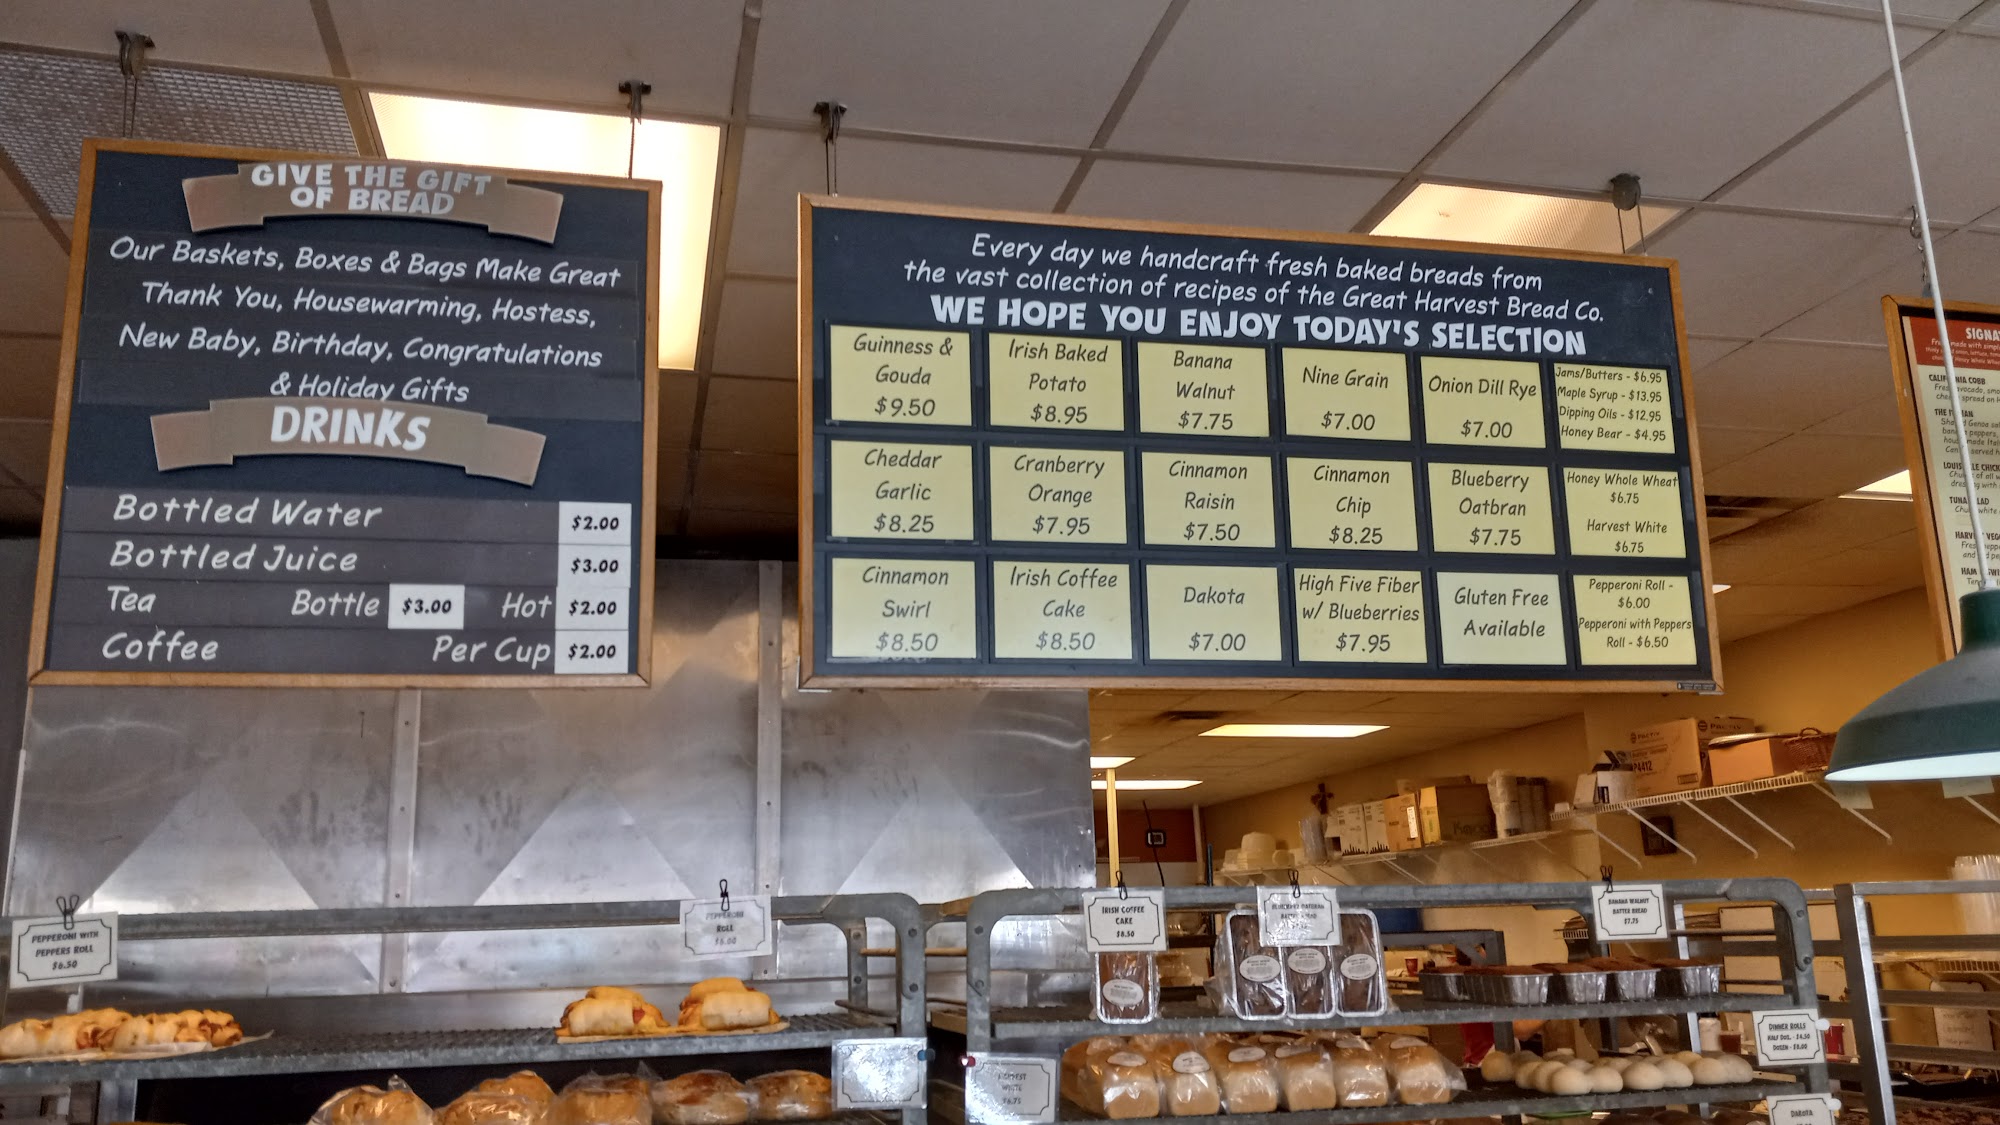 GIVE THE GIFT
OF BREAD
Our Baskets, Boxes & Bags Make Great
Thank You, Housewarming, Hostess,
New Baby, Birthday, Congratulations
& Holiday Gifts
DRINKS
Bottled Water $2.00
Bottled Juice $3.00
Tea Bottle $3.00 Hot $2.00
Coffee Per Cup $2.00
Every day we handcraft fresh baked breads from
the vast collection of recipes of the Great Harvest Bread Co.
WE HOPE YOU ENJOY TODAY'S SELECTION
Guinness &
Gouda
$9.50
Irish Baked
Potato
$8.95
Banana
Walnut
$7.75
Nine Grain
$7.00
Onion Dill Rye
$7.00
Jams/Butters - $6.95
Maple Syrup - $13.95
Dipping Oils - $12.95
Honey Bear - $4.95
Cheddar
Garlic
$8.25
Cranberry
Orange
$7.95
Cinnamon
Raisin
$7.50
Cinnamon
Chip
$8.25
Blueberry
Oatbran
$7.75
Honey Whole Wheat
$6.75
Harvest White
$6.75
Cinnamon
Swirl
$8.50
Irish Coffee
Cake
$8.50
Dakota
$7.00
High Five Fiber
w/ Blueberries
$7.95
Gluten Free
Available
Pepperoni Roll -
$6.00
Pepperoni with Peppers
Roll - $6.50
COBB
THE
TUNA
HAM
PEPPERONI WITH
PEPPERS ROLL
$6.50
PEPPERONI
ROLL
$6.00
IRISH COFFEE
CAKE
$8.50
BATTER BREAD
BANANA WALNUT
BATTER BREAD
$7.75
DINNER ROLLS
HALF DOZ. - $4.50
DOZEN - $8.00
WHITE
$6.75
DAKOTA
P4412